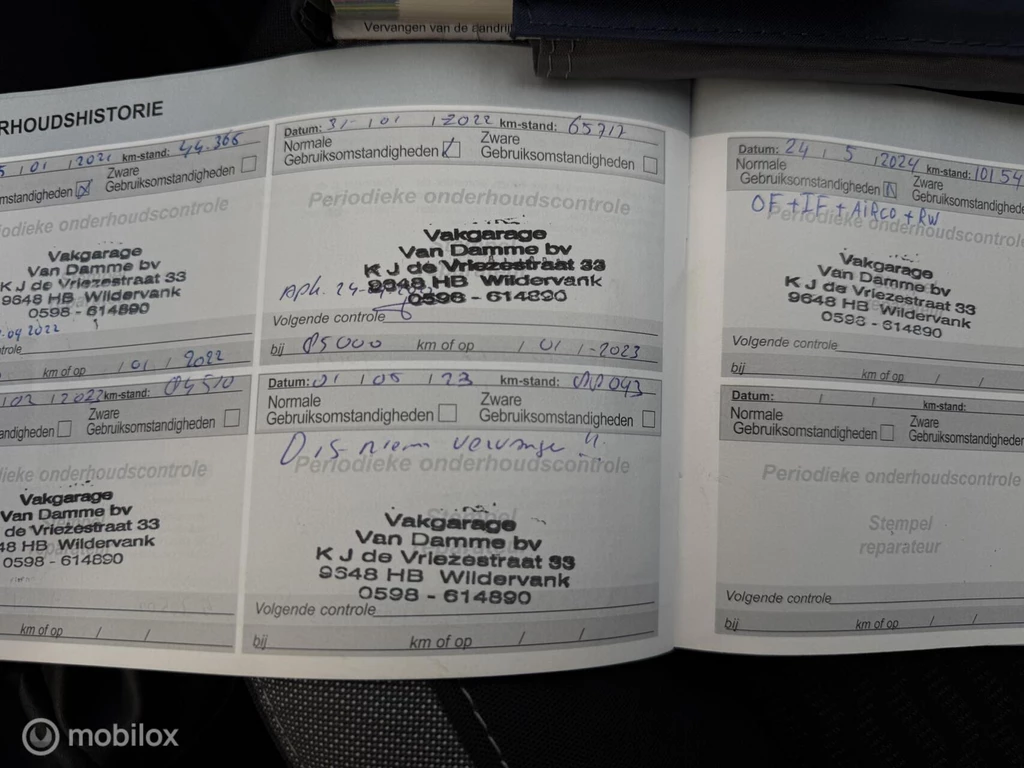 Vervangen van de aandrij
RHOUDSHISTORIE
5 / 01 / 2021 km-stand: 44.366
mstandigheden
Zware
Gebruiksomstandigheden
iodieke onderhoudscontrole
Vakgarage
Van Damme bv
K J de Vriezestraat 33
9648 HB Wildervank
0598 - 614890
-09 2022
ntrole
km of op / 01 / 2022
/ 2022 km-stand: 84510
tandigheden
Zware
Gebruiksomstandigheden
dieke onderhoudscontrole
Vakgarage
Van Damme bv
de Vriezestraat 33
48 HB Wildervank
0598 - 614890
km of op / /
Datum: 31- / 01 / 2022 km-stand: 65717
Normale
Gebruiksomstandigheden
Zware
Gebruiksomstandigheden
Periodieke onderhoudscontrole
Vakgarage
Van Damme bv
K J de Vriezestraat 33
9648 HB Wildervank
0598 - 614890
Apk. 24-
Volgende controle
bij 85000 km of op / 01 / -2023
Datum: 01 / 05 / 23 km-stand: 88043
Normale
Gebruiksomstandigheden
Zware
Gebruiksomstandigheden
Dis-riem vervange !!
Periodieke onderhoudscontrole
Stempel
Vakgarage
Van Damme bv
K J de Vriezestraat 33
9648 HB Wildervank
0598 - 614890
Volgende controle
bij km of op / /
Datum: 24 / 5 / 2024 km-stand: 10154
Normale
Gebruiksomstandigheden
Zware
Gebruiksomstandighede
OF + IF + AIRCO + RW
Periodieke onderhoudscontrole
Vakgarage
Van Damme bv
K J de Vriezestraat 33
9648 HB Wildervank
0598 - 614890
Volgende controle
bij km of op / /
Datum: / / km-stand:
Normale
Gebruiksomstandigheden
Zware
Gebruiksomstandigheden
Periodieke onderhoudscontrole
Stempel
reparateur
Volgende controle
bij km of op / /
mobilox